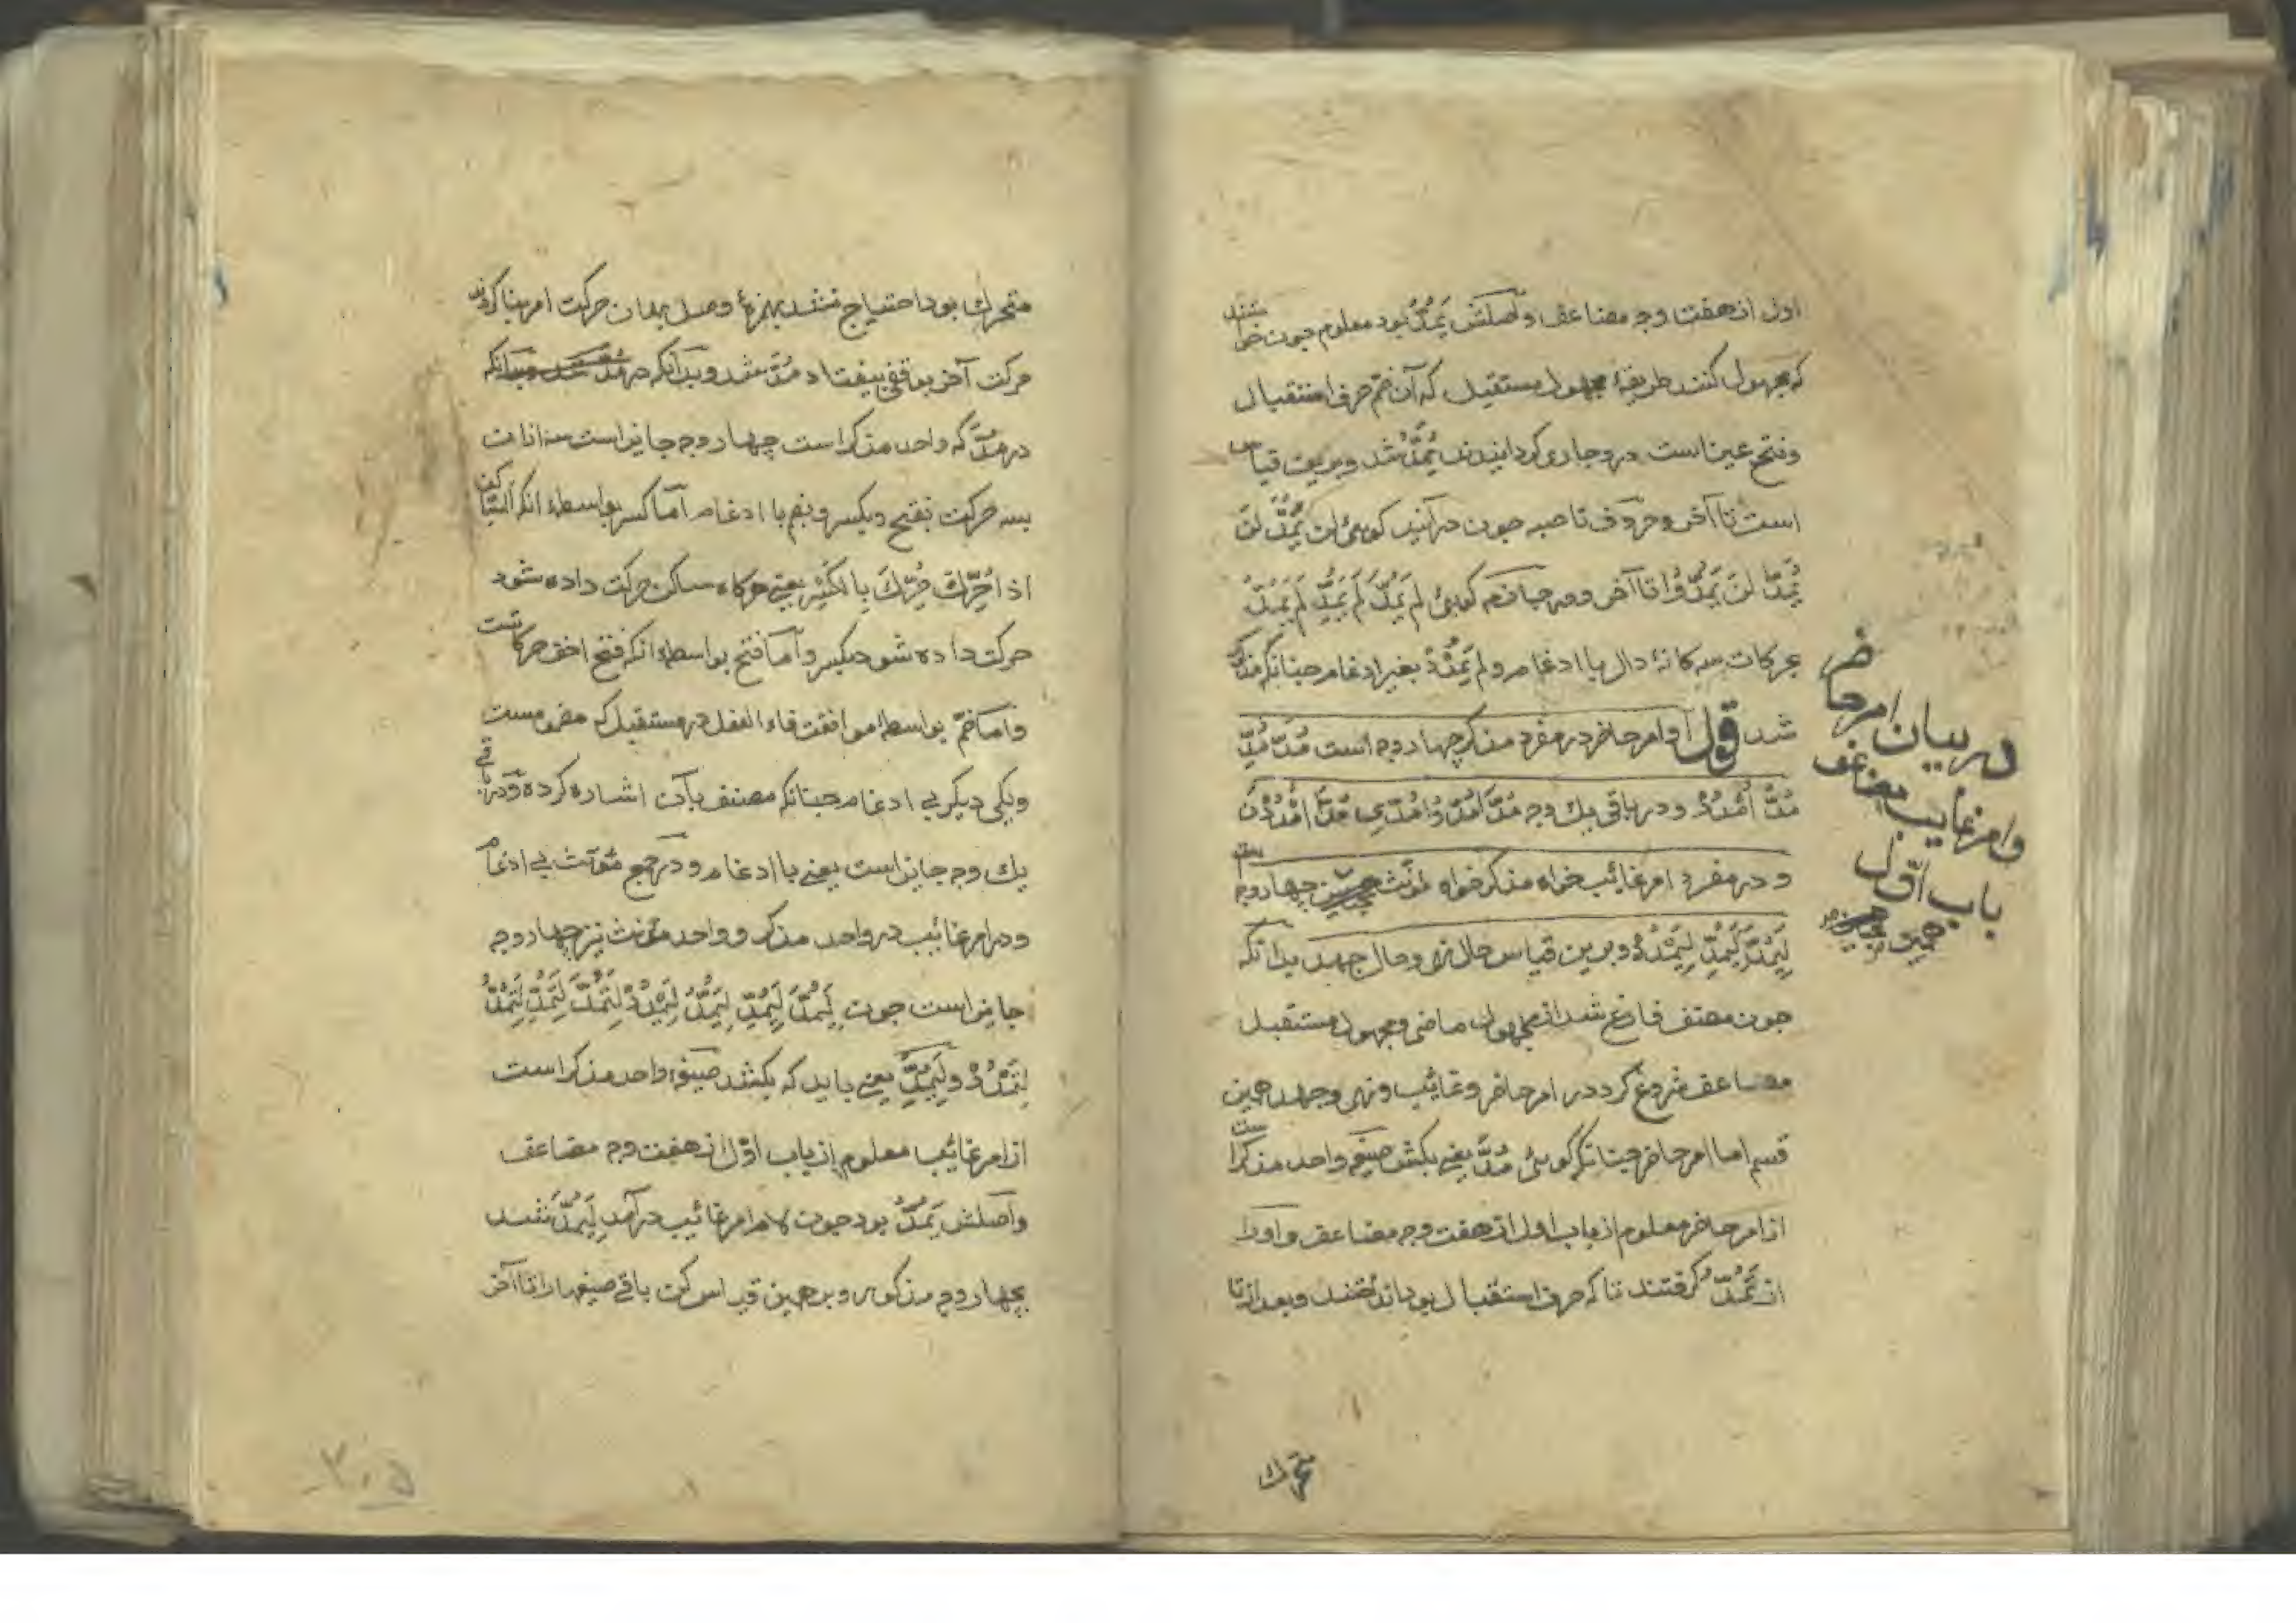 اول از هفت وجه مضاعف و اصلش يَمُدُّ بود معلوم چون خواستند
که مجهول کنند طریقهٔ مجهول مستقبل که آن ضمّ حرف استقبال
و فتح عین است درو جاری کردانیدند يُمَدُّ شد و برین قیاس
است تا آخر و حروف ناصبه چون درآیند کوئی لن يُمَدَّ لن
يُمَدّا لن يُمَدُّوا تا آخر و در جازمه کوئی لم يُمَدَّ لم يُمَدِّ لم يُمَدُّ
بحرکات سه کانهٔ دال با ادغام و لم يُمْدَدْ بغیر ادغام چنانکه مذکور
شد قوله و امر حاضر در مفرد مذکر چهار وجه است مُدَّ مُدِّ
مُدُّ اُمْدُدْ و در باقی یک وجه مُدّا مُدُّوا مُدِّی مُدّا اُمْدُدْنَ
و در مفرد امر غائب خواه مذکر خواه مؤنث چهار وجه است
لِيَمُدَّ لِيَمُدِّ لِيَمْدُدْ و برین قیاس حال نهی و حال جحد بدانکه
چون مصنف فارغ شد از مجهول ماضی و مجهول مستقبل
مضاعف شروع کرد در امر حاضر و غائب و نهی و جحد همین
قسم اما امر حاضر چنانکه کوئی مُدَّ یعنی بکش صیغه واحد مذکر است
از امر حاضر معلوم از باب اول از هفت وجه مضاعف و او را
از تَمُدُّ کرفتند تا که حرف استقبال بود انداختند و بعد از تا
در بیان امر حاضر
و امر غایب مضاعف
باب اوّل
متحرک
متحرک بود احتیاج نشد بهمزهٔ وصل بهمان حرکت امر بنا کردند
حرکت آخر بوقفی بیفتاد مُدَّ شد و بدانکه
در مُدَّ که واحد مذکر است چهار وجه جایز است سه ازان
بسه حرکت بفتح و بکسر و بضم با ادغام امّا کسر بواسطهٔ انکه الساکن
اذا حُرِّكَ حُرِّكَ بالکسر یعنی هرکاه ساکن حرکت داده شود
حرکت داده شود بکسر و امّا فتح بواسطهٔ انکه فتح اخف حرکاتست
و امّا ضمّ بواسطهٔ موافقت فاء الفعل در مستقبل که مضمومست
و یکی دیکر بی ادغام چنانکه مصنف بآن اشاره کرده و در باقی
یک وجه جایز است یعنی با ادغام و در جمع مؤنث بی ادغام
و در امر غائب در واحد مذکر و واحد مؤنث نیز چهار وجه
جایز است چون لِيَمُدَّ لِيَمُدِّ لِيَمُدُّ لِيَمْدُدْ لِتَمُدَّ لِتَمُدِّ لِتَمُدُّ
لِتَمْدُدْ و لِيَمُدَّ یعنی باید که بکشد صیغهٔ واحد مذکر است
از امر غائب معلوم از باب اوّل از هفت وجه مضاعف
و اصلش يَمُدُّ بود چون لام امر غائب درآمد لِيَمُدَّ شد
بچهار وجه مذکور و بر همین قیاس کن باقی صیغها را تا آخر
۳۰۵